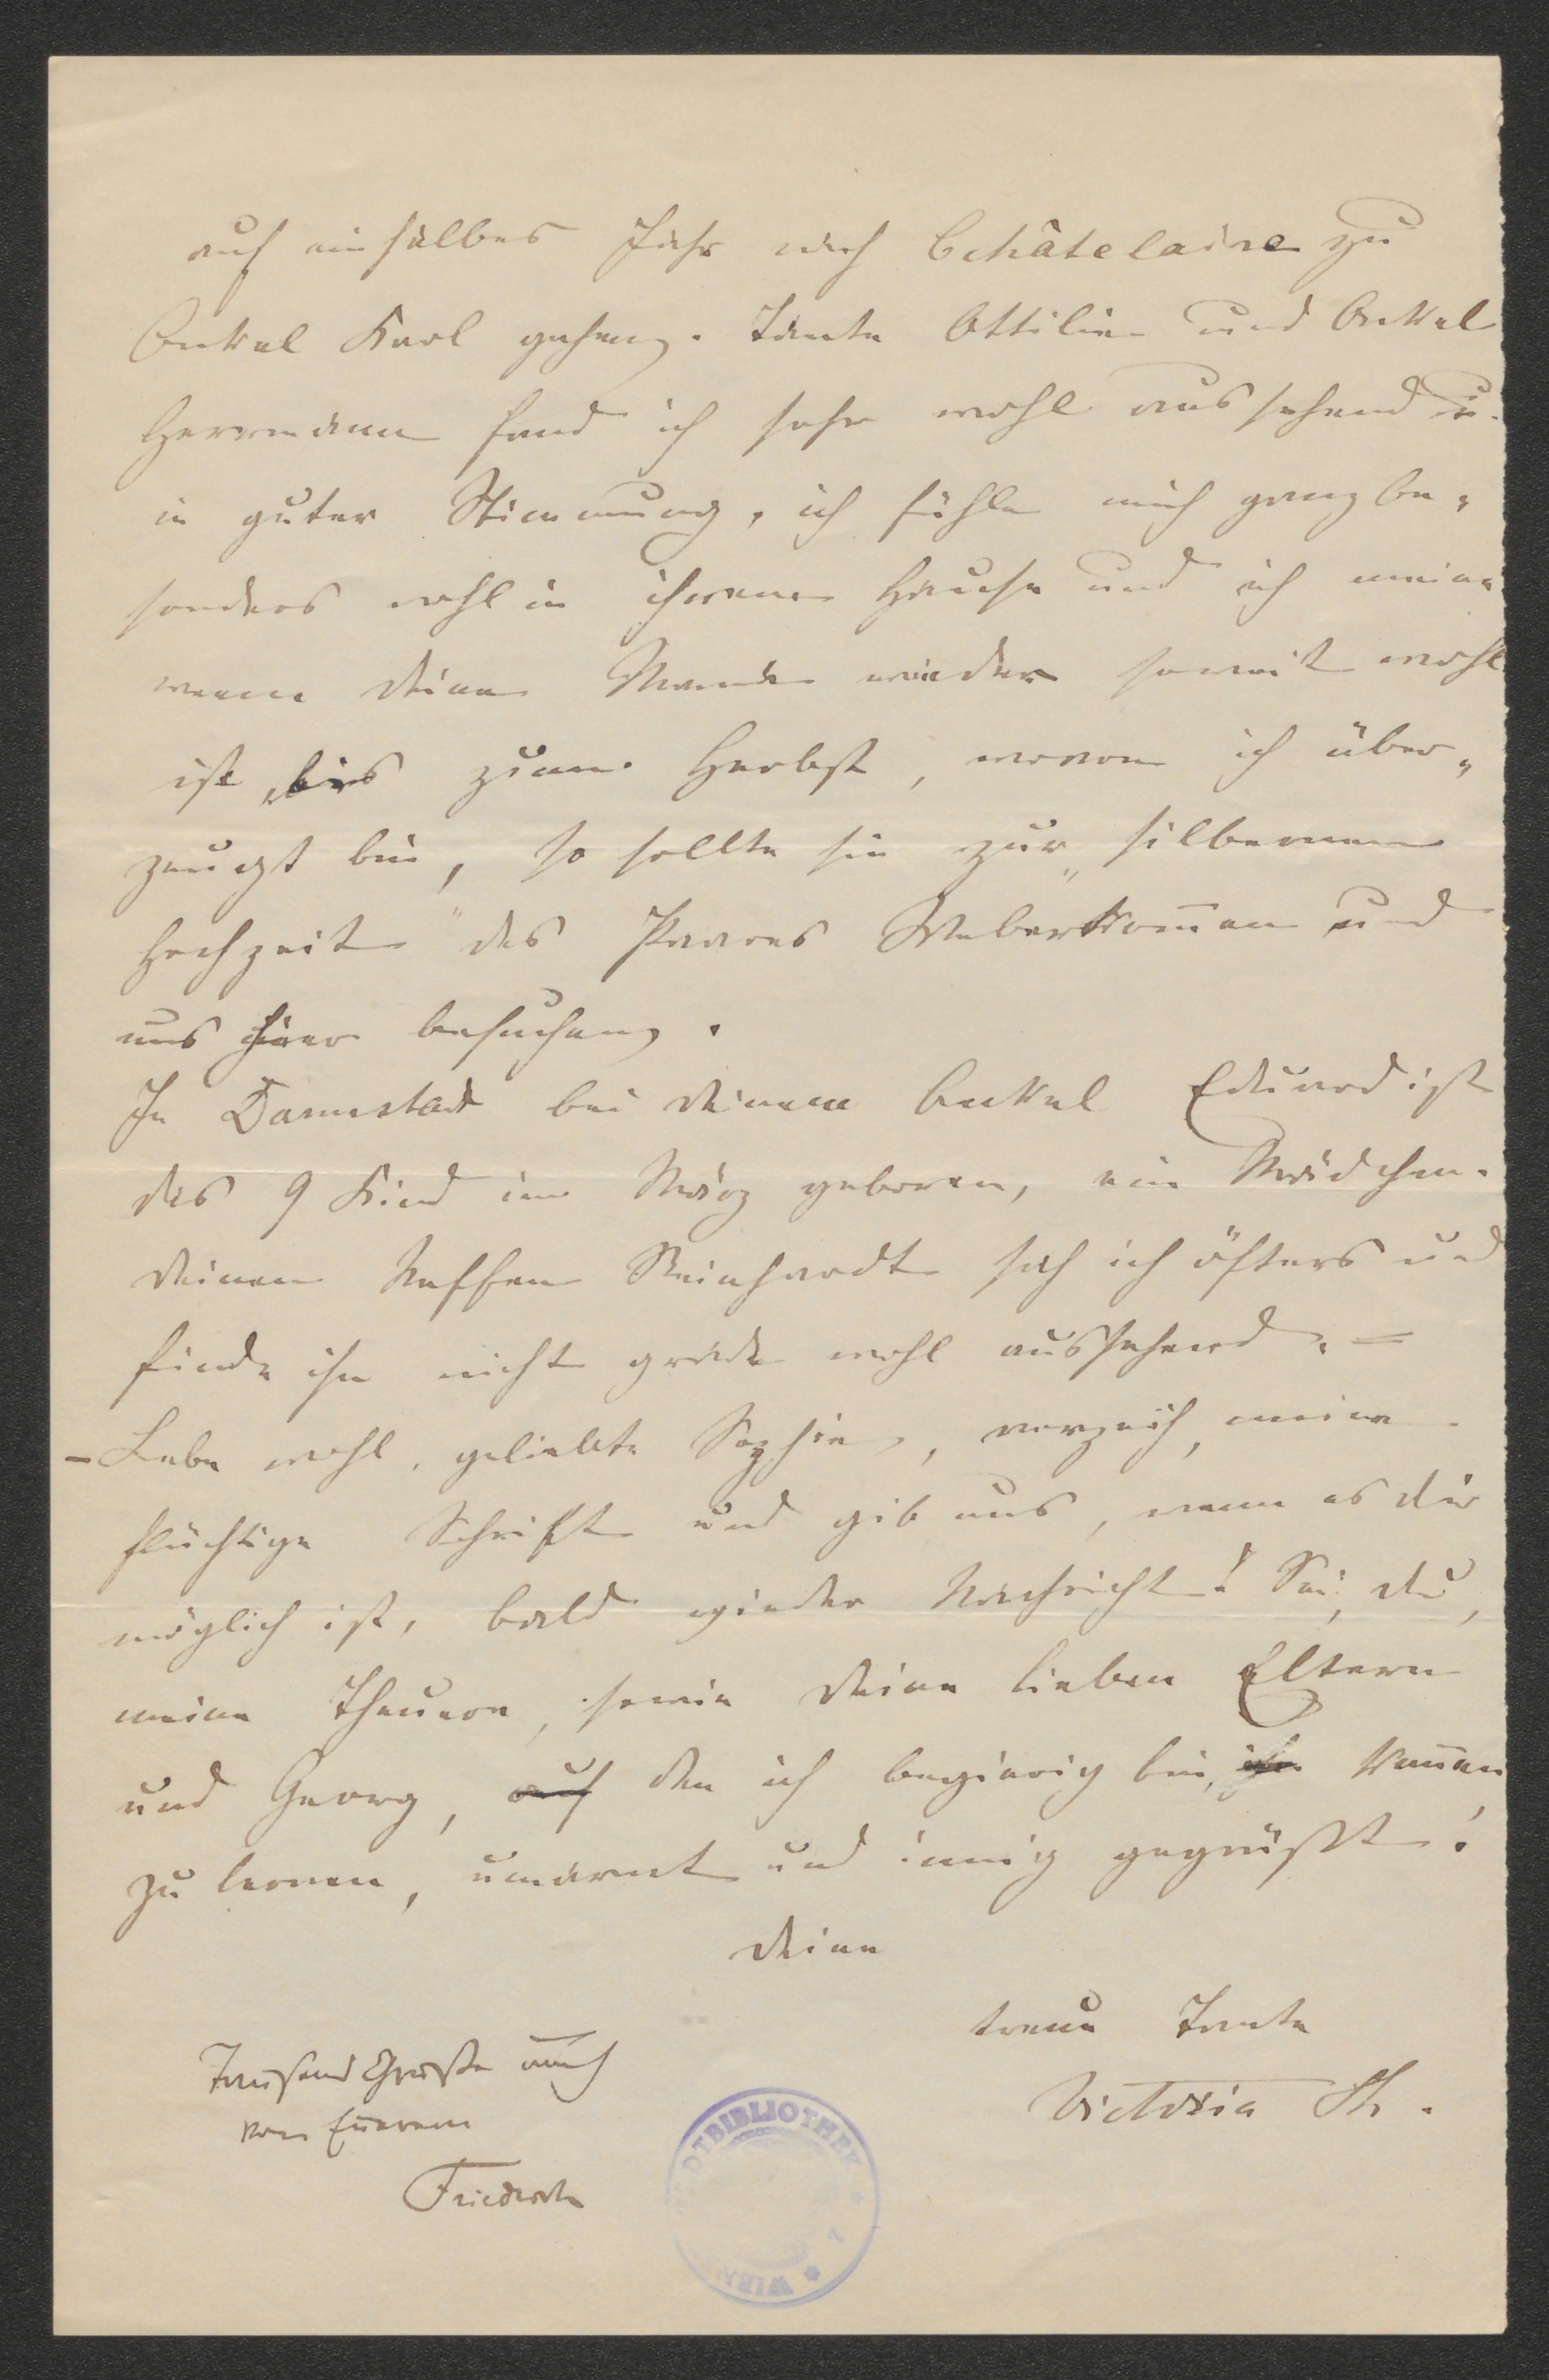 auf ein halbes Jahr nach Châtelaine zu
Onkel Karl gehen. Tante Ottilie und Onkel
Herrmann fand ich sehr wohl aussehend u.
in guter Stimmung, ich fühle mich ganz be„
sonders wohl in ihrem Hause und ich meine
wenn deine Mama wieder soweit wohl
ist, bis zum Herbst, wovon ich über„
zeugt bin, so sollte sie zur „silbernen
Hochzeit" des Paares Weber kom̄en und
uns hier besuchen.
In Darmstadt bei deinem Onkel Eduard ist
das 9 Kind im März geboren, ein Mädchen.
deinen Neffen Reinhardt sah ich öfters und
finde ihn nicht grade wohl aussehend. –
– Lebe wohl, geliebte Sophie, verzeih, meine
flüchtige Schrift und gib uns, wenn es dir
möglich ist, bald wieder Nachricht! Sei, du,
meine Theuere, sowie deine lieben Eltern
und Georg, auf den ich begierig bin, ken̄en
zu lernen, umarmt und innig gegrüßt!
deine
treue Tante
Victoria Th.
Tausend Grüße auch
von Euerem
Friedrich
STADTBIBLIOTHEK
WIEN